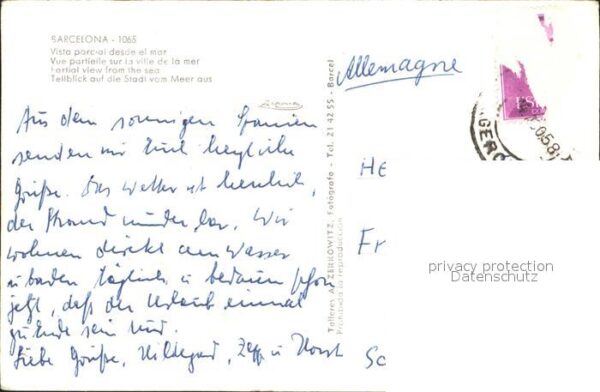 BARCELONA - 1065
Vista parcial desde el mar
Vue partielle sur la ville de la mer
Partial view from the sea
Teilblick auf die Stadt vom Meer aus
Allemagne
Aus dem sonnigen Spanien
senden wir Euch herzliche
Grüße. Das Wetter ist herrlich,
der Strand wunderbar. Wir
wohnen direkt am Wasser
u baden täglich u bedauern schon
jetzt, daß der Urlaub einmal
zu Ende sein wird.
Liebe Grüße, Hildegard, Zepp u Horst
Talleres A. ZERKOWITZ, Fotógrafo - Tel. 21 42 55 - Barcel
Prohibida la reproducción
HE
Fr
Sc
privacy protection
Datenschutz